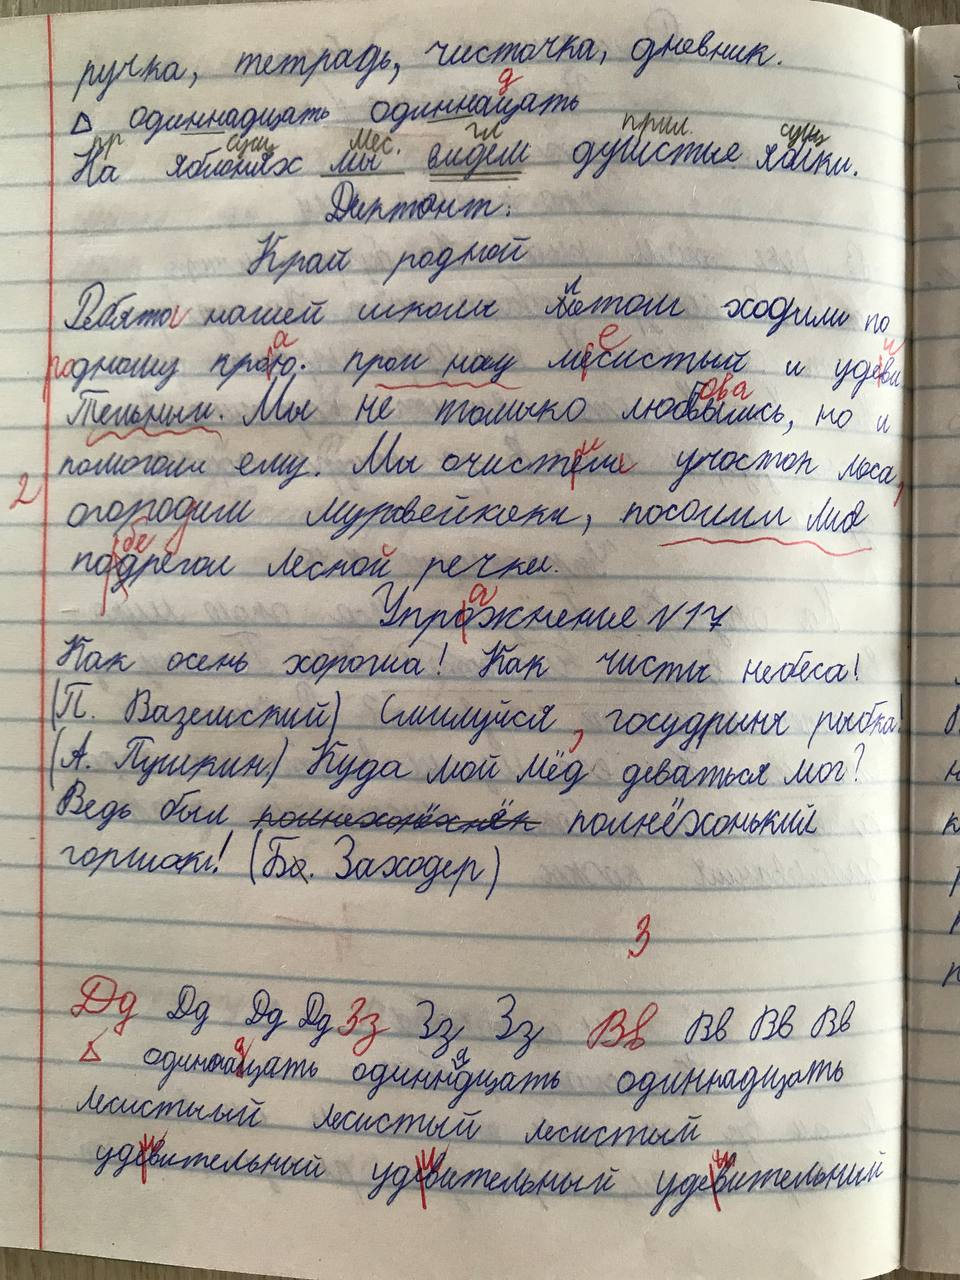 ручка, тетрадь, чисточка, дневник.
д
Δ одиннадцать одиннацать
пр сущ мес. гл прил. сущ
На яблонях мы видем душистые яблки.
Диктант.
Край родной
Ребята нашей школы летом ходили по
родному краю. наш лесистый и удеви
тельный. Мы не только любовались, но и
помогали ему. Мы очистели участок леса,
огородили муровейники,
подрегол лесной речки.
а
Упрожнение N17
Как осень хороша! Как чисты небеса!
(П. Вяземский) Смилуйся, государиня рыбка!
(А. Пушкин) Куда мой мёд деваться мог?
Ведь был полнёхонький
горшок! (Б. Заходер)
2
3
Дд Дд Дд Дд Зз Зз Зз Вв Вв Вв Вв
Δ одиннацать одиннадцать одиннадцать
лесистный лесистый лесистый
удевительный удевительный удевительний